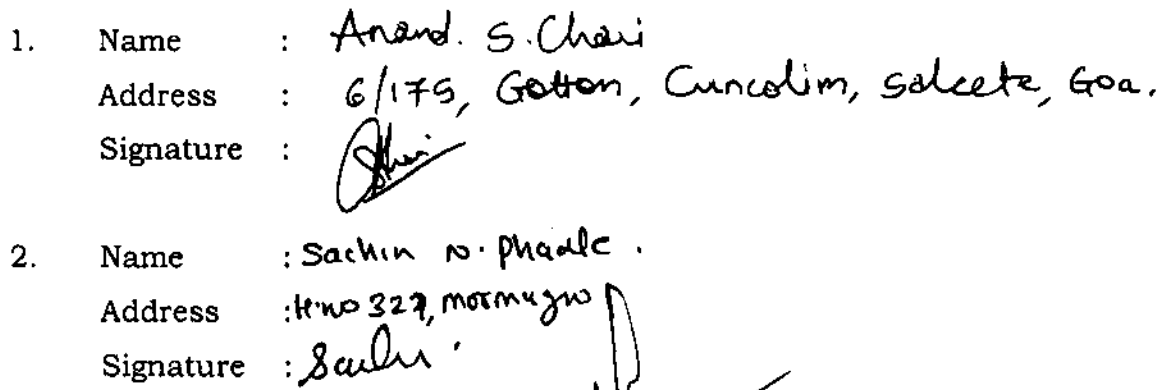 1. Name : Anand. S. Chari
Address : 6/175, Gotton, Cuncolim, Salcete, Goa.
Signature :
2. Name : Sachin N. Phadte .
Address : H.no 327, mormugao
Signature :